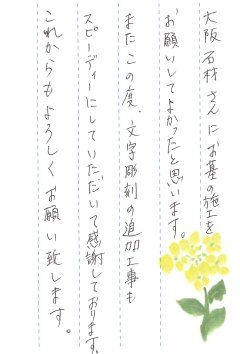 大阪石材さんにお墓の施工を
お願いしてよかったと思います。
またこの度、文字彫刻の追加工事も
スピーディーにしていただいて感謝しております。
これからもよろしくお願い致します。